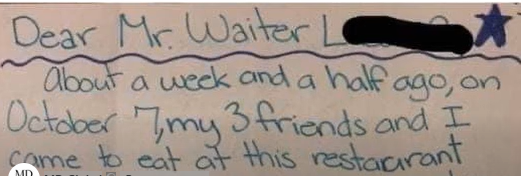 Dear Mr. Waiter L
About a week and a half ago, on
October 7, my 3 friends and I
came to eat at this restaurant
MD